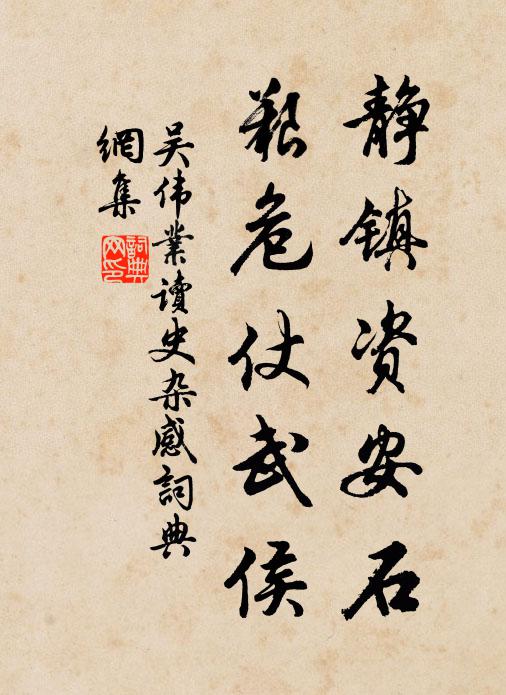 静镇资安石
艰危仗武侯
吴伟業讀史杂感詞典
網集
詞典网印